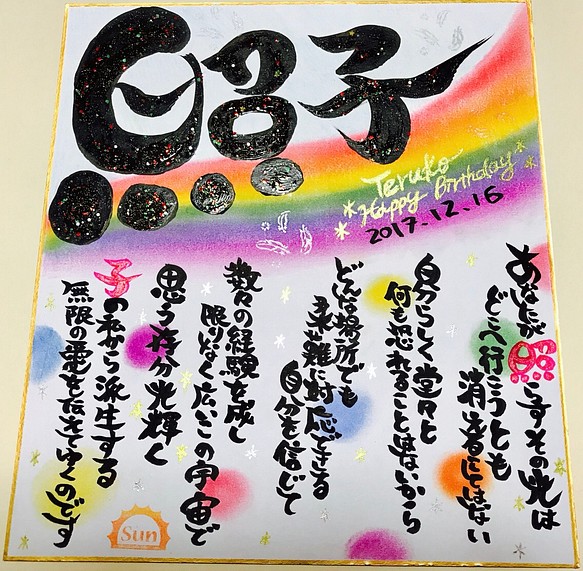 照子
Teruko
Happy Birthday
2017.12.16
あなたが照らすその光は
どこへ行こうとも
消えることはない
自分らしく堂々と
何も恐れることはないから
どんな場所でも
柔軟に対応できる
自分を信じて
数々の経験を成し
限りなく広いこの宇宙で
思う存分光輝く
子の私から派生する
無限の愛を伝えてゆくのです
Sun